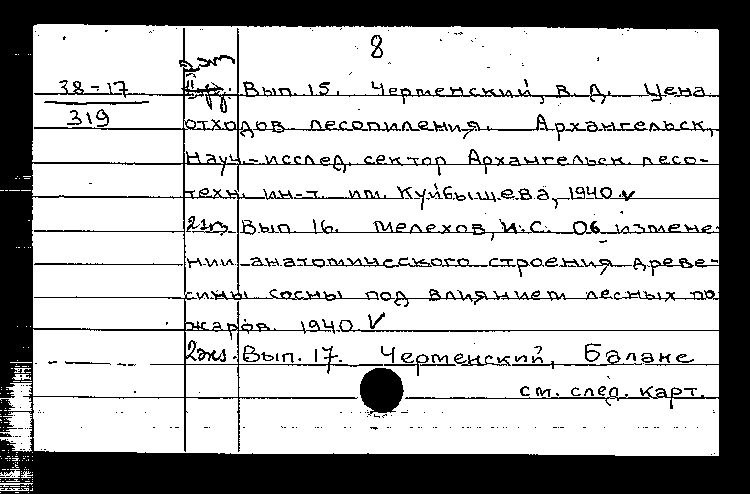 8
38-17
319
Вып. 15. Черменский, В. Д. Цена
отходов лесопиления. Архангельск,
Науч.-исслед. сектор Архангельск. лесо-
техн. ин-т. им. Куйбышева, 1940 v
2экз. Вып. 16. Мелехов, И.С. Об измене-
нии анатомического строения древе-
сины сосны под влиянием лесных по
жаров. 1940 V
2экз. Вып. 17. Черменский, Баланс
см. след. карт.